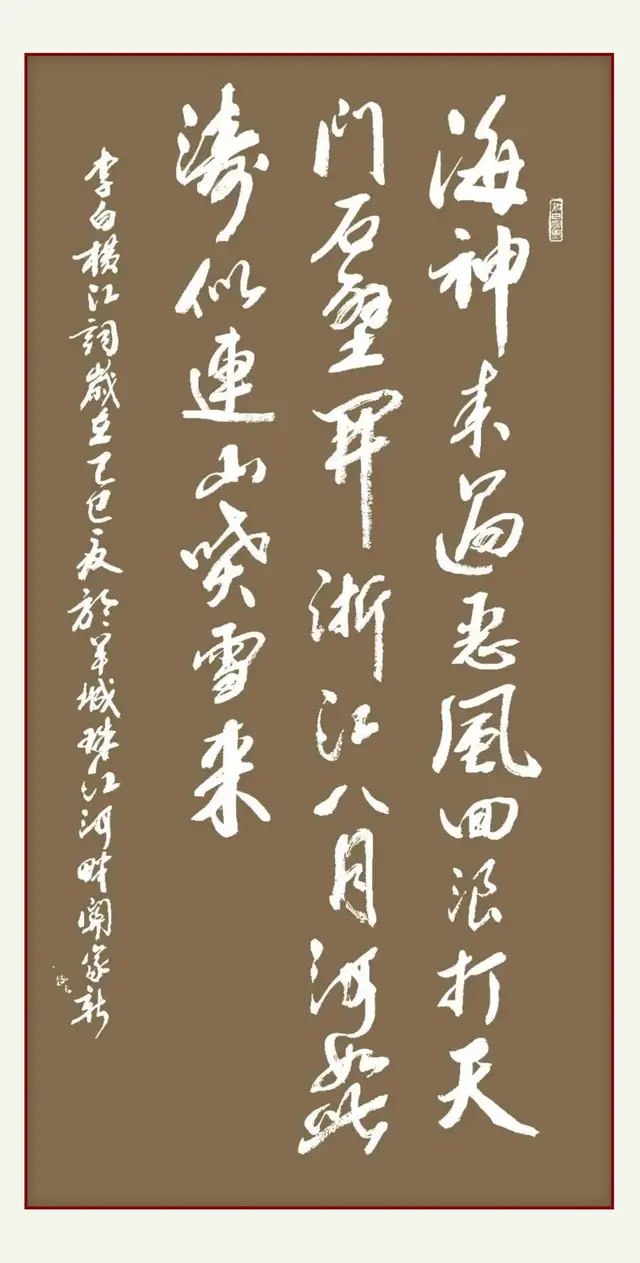 海神来過恶風回浪打天
门石壁開浙江八月河如此
濤似連山喷雪来
李白横江詞歲在乙巳夏於羊城珠江河畔 家新